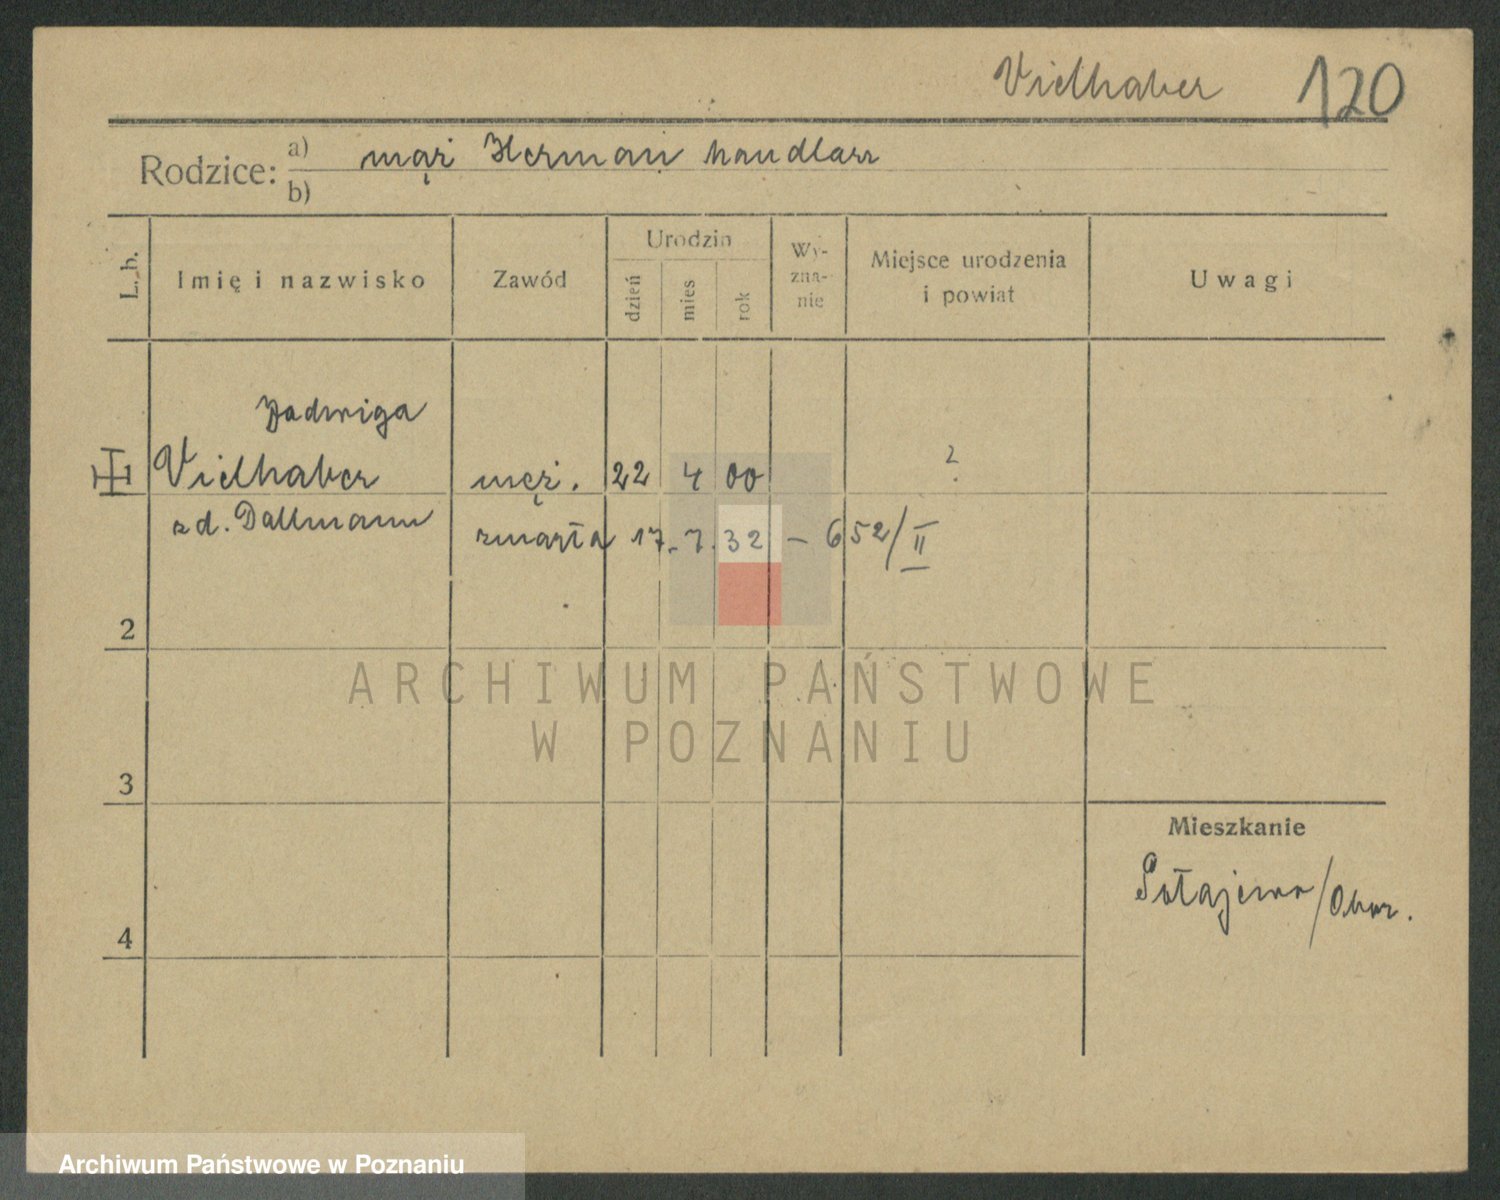 Vielhaber 120
Rodzice: a) mąż Herman handlarz
b)
L. b.
Imię i nazwisko
Zawód
Urodzin
dzień
mies
rok
Wy-
zna-
nie
Miejsce urodzenia
i powiat
Uwagi
Jadwiga
1 Vielhaber męż. 22 4 00 ?
zd. Dallmann
zmarła 17.7.32 – 652/II
2
ARCHIWUM PAŃSTWOWE
W POZNANIU
3
Mieszkanie
Połajewo/Obor.
4
Archiwum Państwowe w Poznaniu